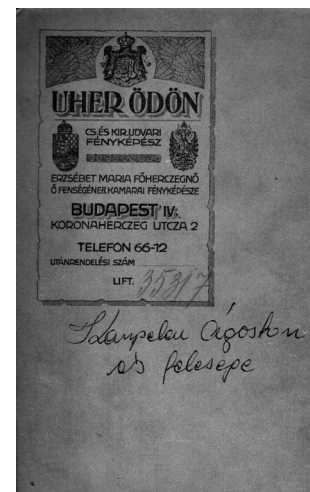 UHER ÖDÖN
CS. ÉS KIR. UDVARI
FÉNYKÉPÉSZ
ERZSÉBET MARIA FŐHERCZEGNŐ
Ő FENSÉGÉNEK KAMARAI FÉNYKÉPÉSZE
BUDAPEST IV.
KORONAHERCZEG UTCZA 2
TELEFON 66-12
UTÁNRENDELÉSI SZÁM
LIFT. 35317
Ágoston
és felesége